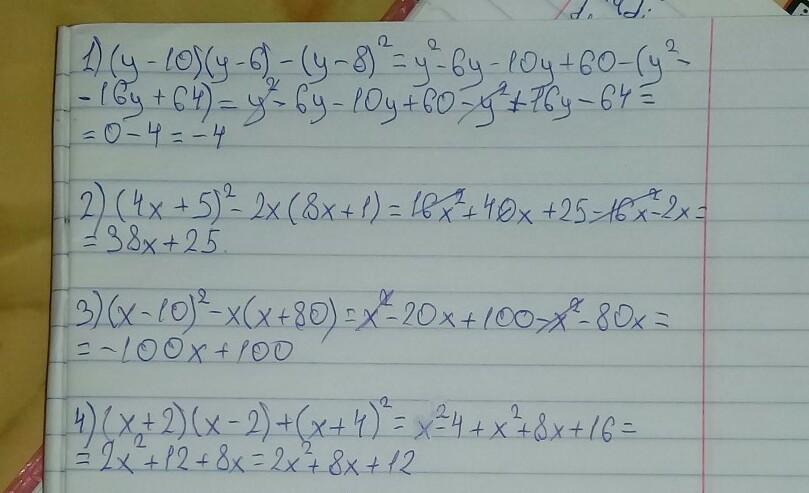 1) (y-10)(y-6)-(y-8)²=y²-6y-10y+60-(y²-
-16y+64)=y²-6y-10y+60-y²+16y-64=
=0-4=-4
2) (4x+5)²-2x(8x+1)=16x²+40x+25-16x²-2x=
=38x+25.
3) (x-10)²-x(x+80)=x²-20x+100-x²-80x=
=-100x+100
4) (x+2)(x-2)+(x+4)²=x²-4+x²+8x+16=
=2x²+12+8x=2x²+8x+12